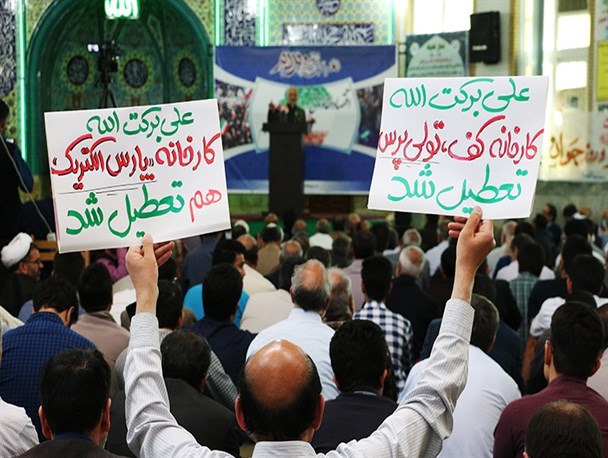 علی برکت الله
کارخانه کف، تولی پرس
تعطیل شد
علی برکت الله
کارخانه «پارس الکتریک»
هم تعطیل شد